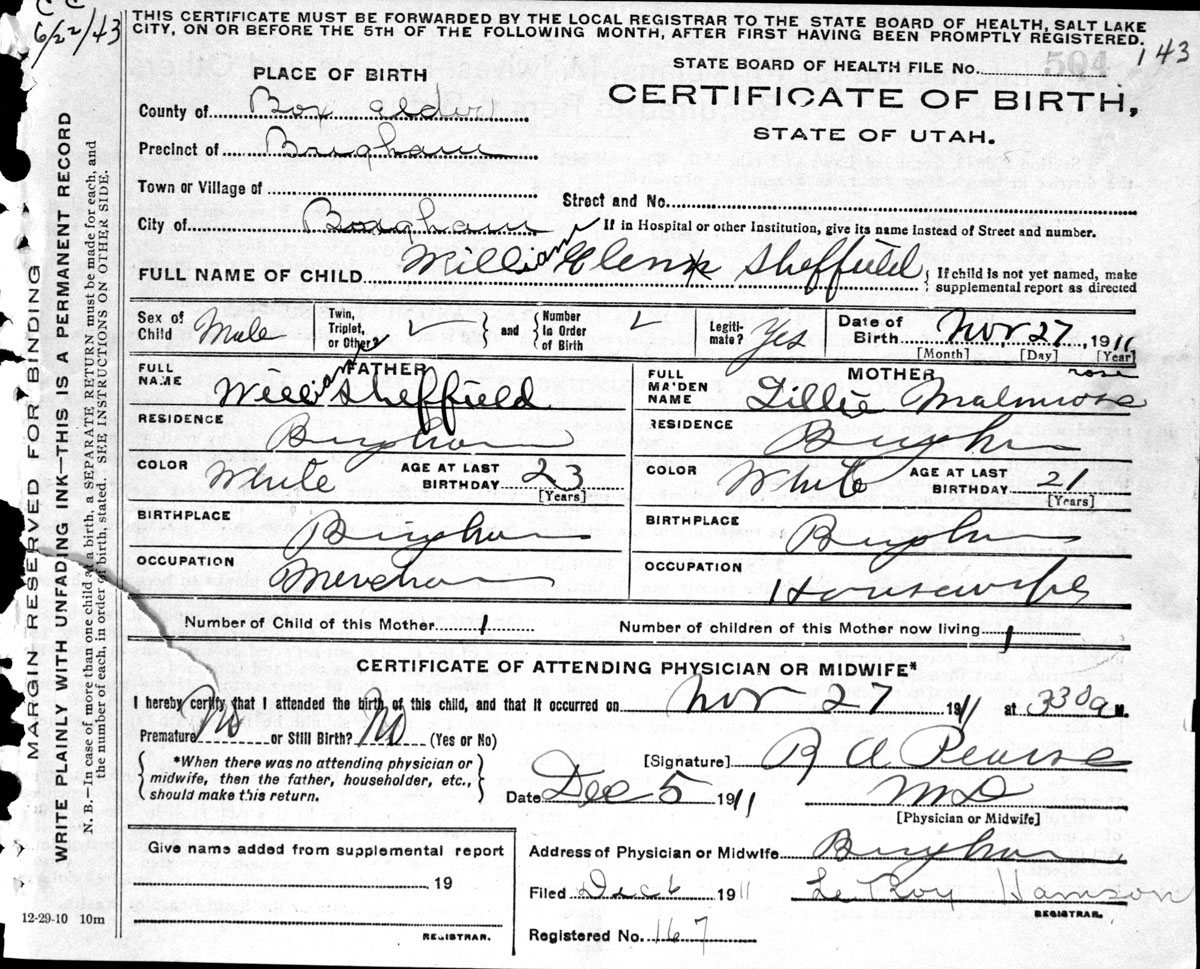 C C
6/22/43
THIS CERTIFICATE MUST BE FORWARDED BY THE LOCAL REGISTRAR TO THE STATE BOARD OF HEALTH, SALT LAKE
CITY, ON OR BEFORE THE 5TH OF THE FOLLOWING MONTH, AFTER FIRST HAVING BEEN PROMPTLY REGISTERED.
143
STATE BOARD OF HEALTH FILE No. 504
PLACE OF BIRTH
CERTIFICATE OF BIRTH,
STATE OF UTAH.
County of Box elder
Precinct of Brigham
Town or Village of
Street and No.
City of Brigham
If in Hospital or other Institution, give its name instead of Street and number.
FULL NAME OF CHILD William Glenn Sheffield { If child is not yet named, make
supplemental report as directed
Sex of
Child Male
Twin,
Triplet,
or Other? ✓ } and { Number
in Order
of Birth ✓
Legiti-
mate? Yes
Date of
Birth Nov 27, 1911
[Month] [Day] [Year]
FATHER
FULL
NAME Will Sheffield
RESIDENCE Brigham
COLOR White AGE AT LAST
BIRTHDAY 23
[Years]
BIRTHPLACE Brigham
OCCUPATION Merchan
MOTHER
rose
FULL
MAIDEN
NAME Lillie Malmrose
RESIDENCE Brigham
COLOR White AGE AT LAST
BIRTHDAY 21
[Years]
BIRTHPLACE Brigham
OCCUPATION Housewife
Number of Child of this Mother 1 Number of children of this Mother now living 1
CERTIFICATE OF ATTENDING PHYSICIAN OR MIDWIFE*
I hereby certify that I attended the birth of this child, and that it occurred on Nov 27 1911 at 330 a M.
Premature No or Still Birth? No (Yes or No)
{ *When there was no attending physician or
midwife, then the father, householder, etc.,
should make this return. }
[Signature] R A Pearse
Date Dec 5 1911 MD
[Physician or Midwife]
Give name added from supplemental report
19
REGISTRAR.
Address of Physician or Midwife Brigham
Filed Dec 6 1911 Le Roy Hanson
REGISTRAR.
Registered No. 167
12-29-10 10m
MARGIN RESERVED FOR BINDING
WRITE PLAINLY WITH UNFADING INK—THIS IS A PERMANENT RECORD
N. B.—In case of more than one child at a birth, a SEPARATE RETURN must be made for each, and
the number of each, in order of birth, stated. SEE INSTRUCTIONS ON OTHER SIDE.